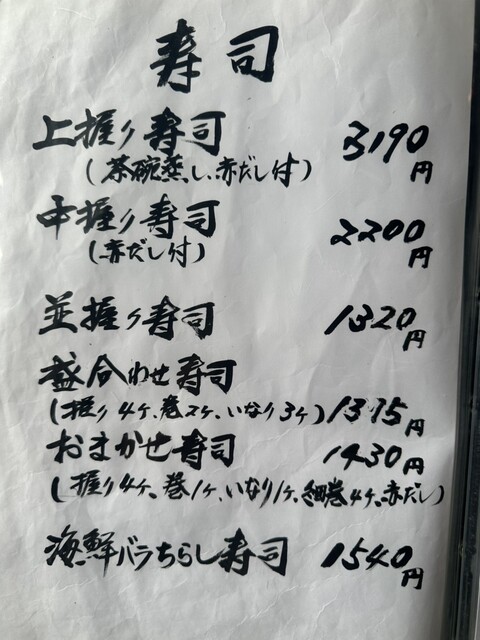 寿司
上握り寿司 3190円
(茶碗蒸し、赤だし付)
中握り寿司 2200円
(赤だし付)
並握り寿司 1320円
盛合わせ寿司
(握り4ヶ、巻2ヶ、いなり3ヶ) 1375円
おまかせ寿司 1430円
(握り4ヶ、巻1ヶ、いなり1ヶ、細巻4ヶ、赤だし)
海鮮バラちらし寿司 1540円